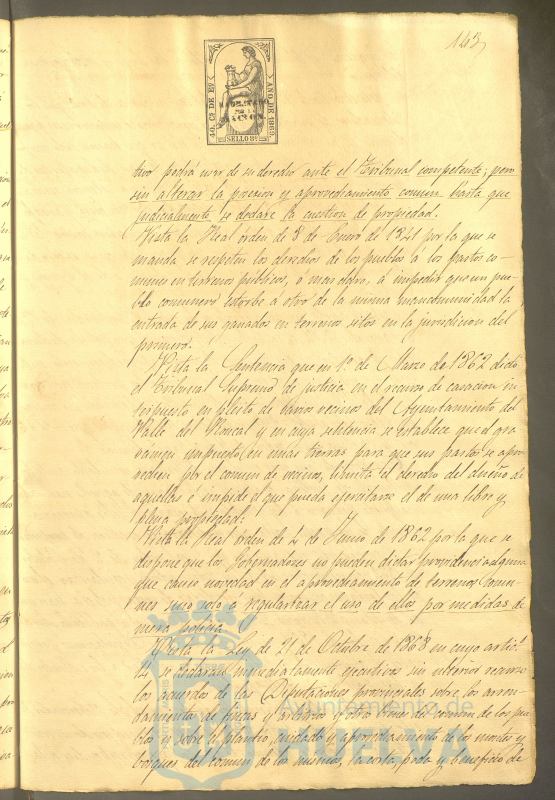 143
40. Cs. DE Eo. AÑO DE 1869.
HABILITADO
POR LA
NACION.
SELLO 9º.
tivo podrá usar de su derecho ante el Tribunal competente; pero
sin alterar la posesion y aprovechamiento comun hasta que
judicialmente se declare la cuestion de propiedad.
Vista la Real órden de 8 de Enero de 1841 por la que se
manda se respeten los derechos de los pueblos á los pastos co-
munes en terrenos públicos, ó mas claro, á impedir que un pue-
blo comunero estorbe á otro de la misma mancomunidad la
entrada de sus ganados en terrenos sitos en la jurisdicion del
primero.
Vista la Sentencia que en 1º. de Marzo de 1862 dictó
el Tribunal Supremo de justicia en el recurso de casacion in-
terpuesto en pleito de varios vecinos del Ayuntamiento del
Valle del Roncal y en cuya sentencia se establece que el gra-
vamen impuesto en unas tierras para que sus pastos se apro-
vechen por el comun de vecinos, limita el derecho del dueño de
aquellas é impide el que pueda ejercitarse el de una libre y
plena propiedad:
Vista la Real órden de 2 de Junio de 1862 por la que se
dispone que los Gobernadores no pueden dictar providencia alguna
que cause novedad en el aprovechamiento de terrenos comu-
nes sino solo á regularizar el uso de ellos por medidas de
mera policia
Vista la Ley de 21 de Octubre de 1868 en cuyo artíc.º
14 se declaran inmediatamente ejecutivos sin ulterior recurso
los acuerdos de las Diputaciones provinciales sobre los arren-
damientos de fincas y arbitrios y otros bienes del comun de los pue-
blos y sobre el plantío, cuidado y aprovechamiento de los montes y
bosques del comun de los mismos, la corta, poda y beneficio de
Ayuntamiento de
HUELVA